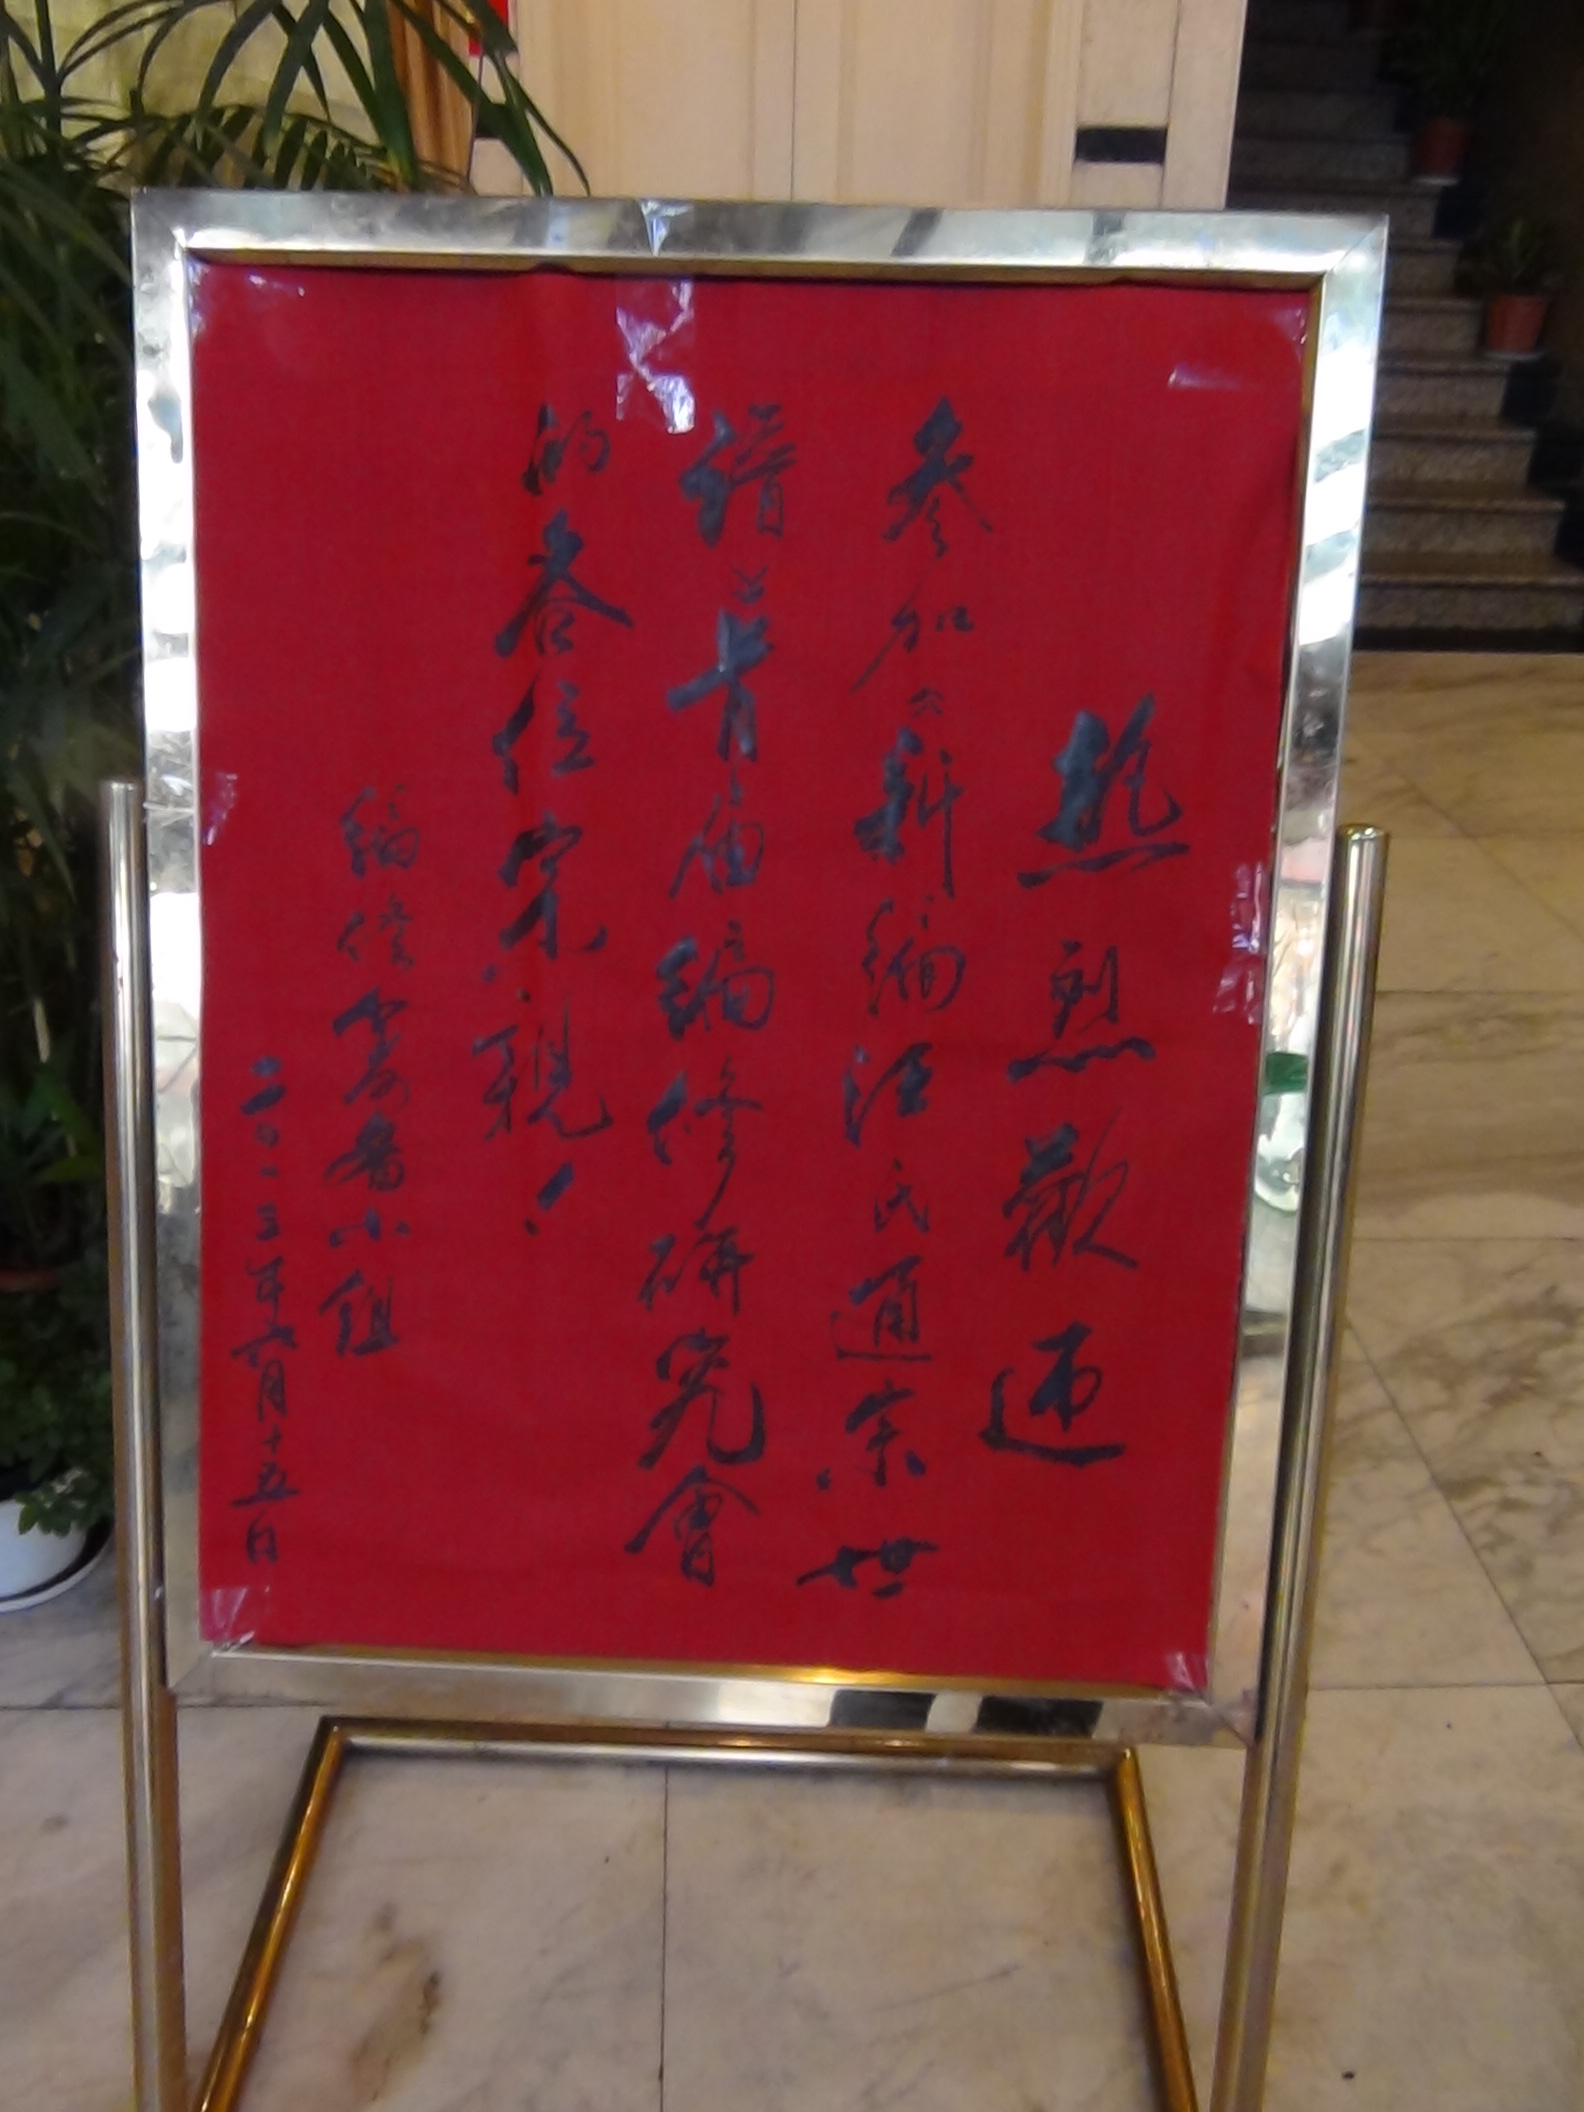 熱烈歡迎
参加《新編汪氏通宗世
譜》首届編修研究會
的各位宗親！
編修筹备小組
二〇一三年六月十五日